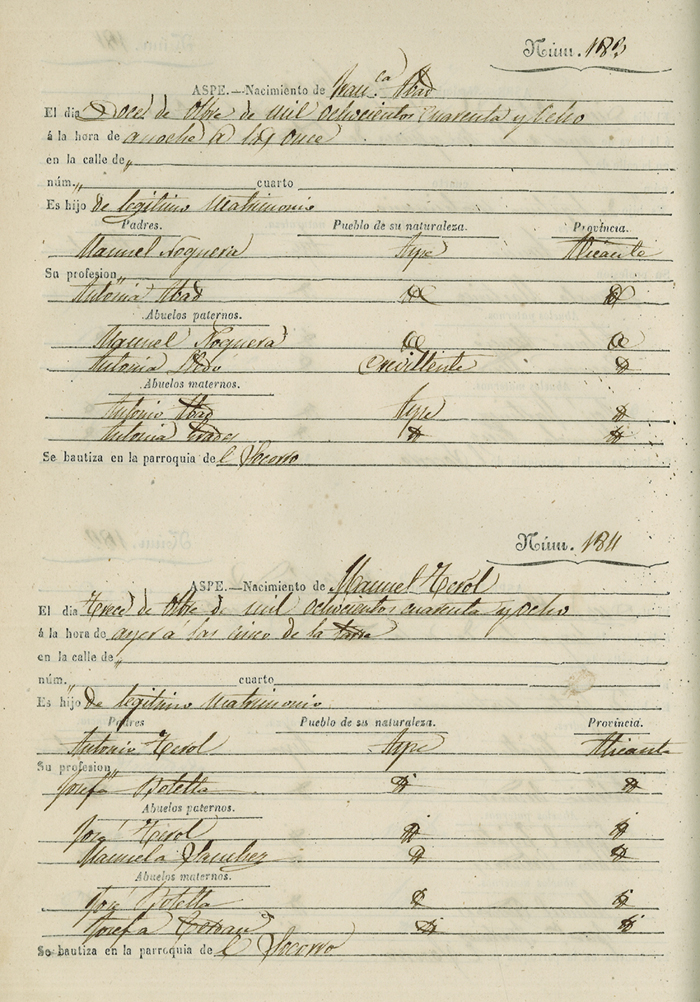 Núm. 183
ASPE.—Nacimiento de Fran.ca Abad
El dia Doce de Obre de mil ochocientos cuarenta y Ocho
á la hora de anoche a las once
en la calle de "
núm. " cuarto
Es hijo de legitimo Matrimonio
Padres. Pueblo de su naturaleza. Provincia.
Manuel Noguera Aspe Alicante
Su profesion "
Antonia Abad
Abuelos paternos.
Manuel Noguera
Antonia Crevillente
Abuelos maternos.
Antonio Abad Aspe
Antonia
Se bautiza en la parroquia del Socorro
Núm. 184
ASPE.—Nacimiento de Manuel Terol
El dia Trece de Obre de mil ochocientos cuarenta y ocho
á la hora de ayer á las cinco de la tarde
en la calle de "
núm. " cuarto
Es hijo de legitimo Matrimonio
Padres Pueblo de su naturaleza. Provincia.
Antonio Terol Aspe Alicante
Su profesion "
Josefa Botella
Abuelos paternos.
José Terol
Manuela Sanchez
Abuelos maternos.
José Botella
Josefa
Se bautiza en la parroquia de el Socorro